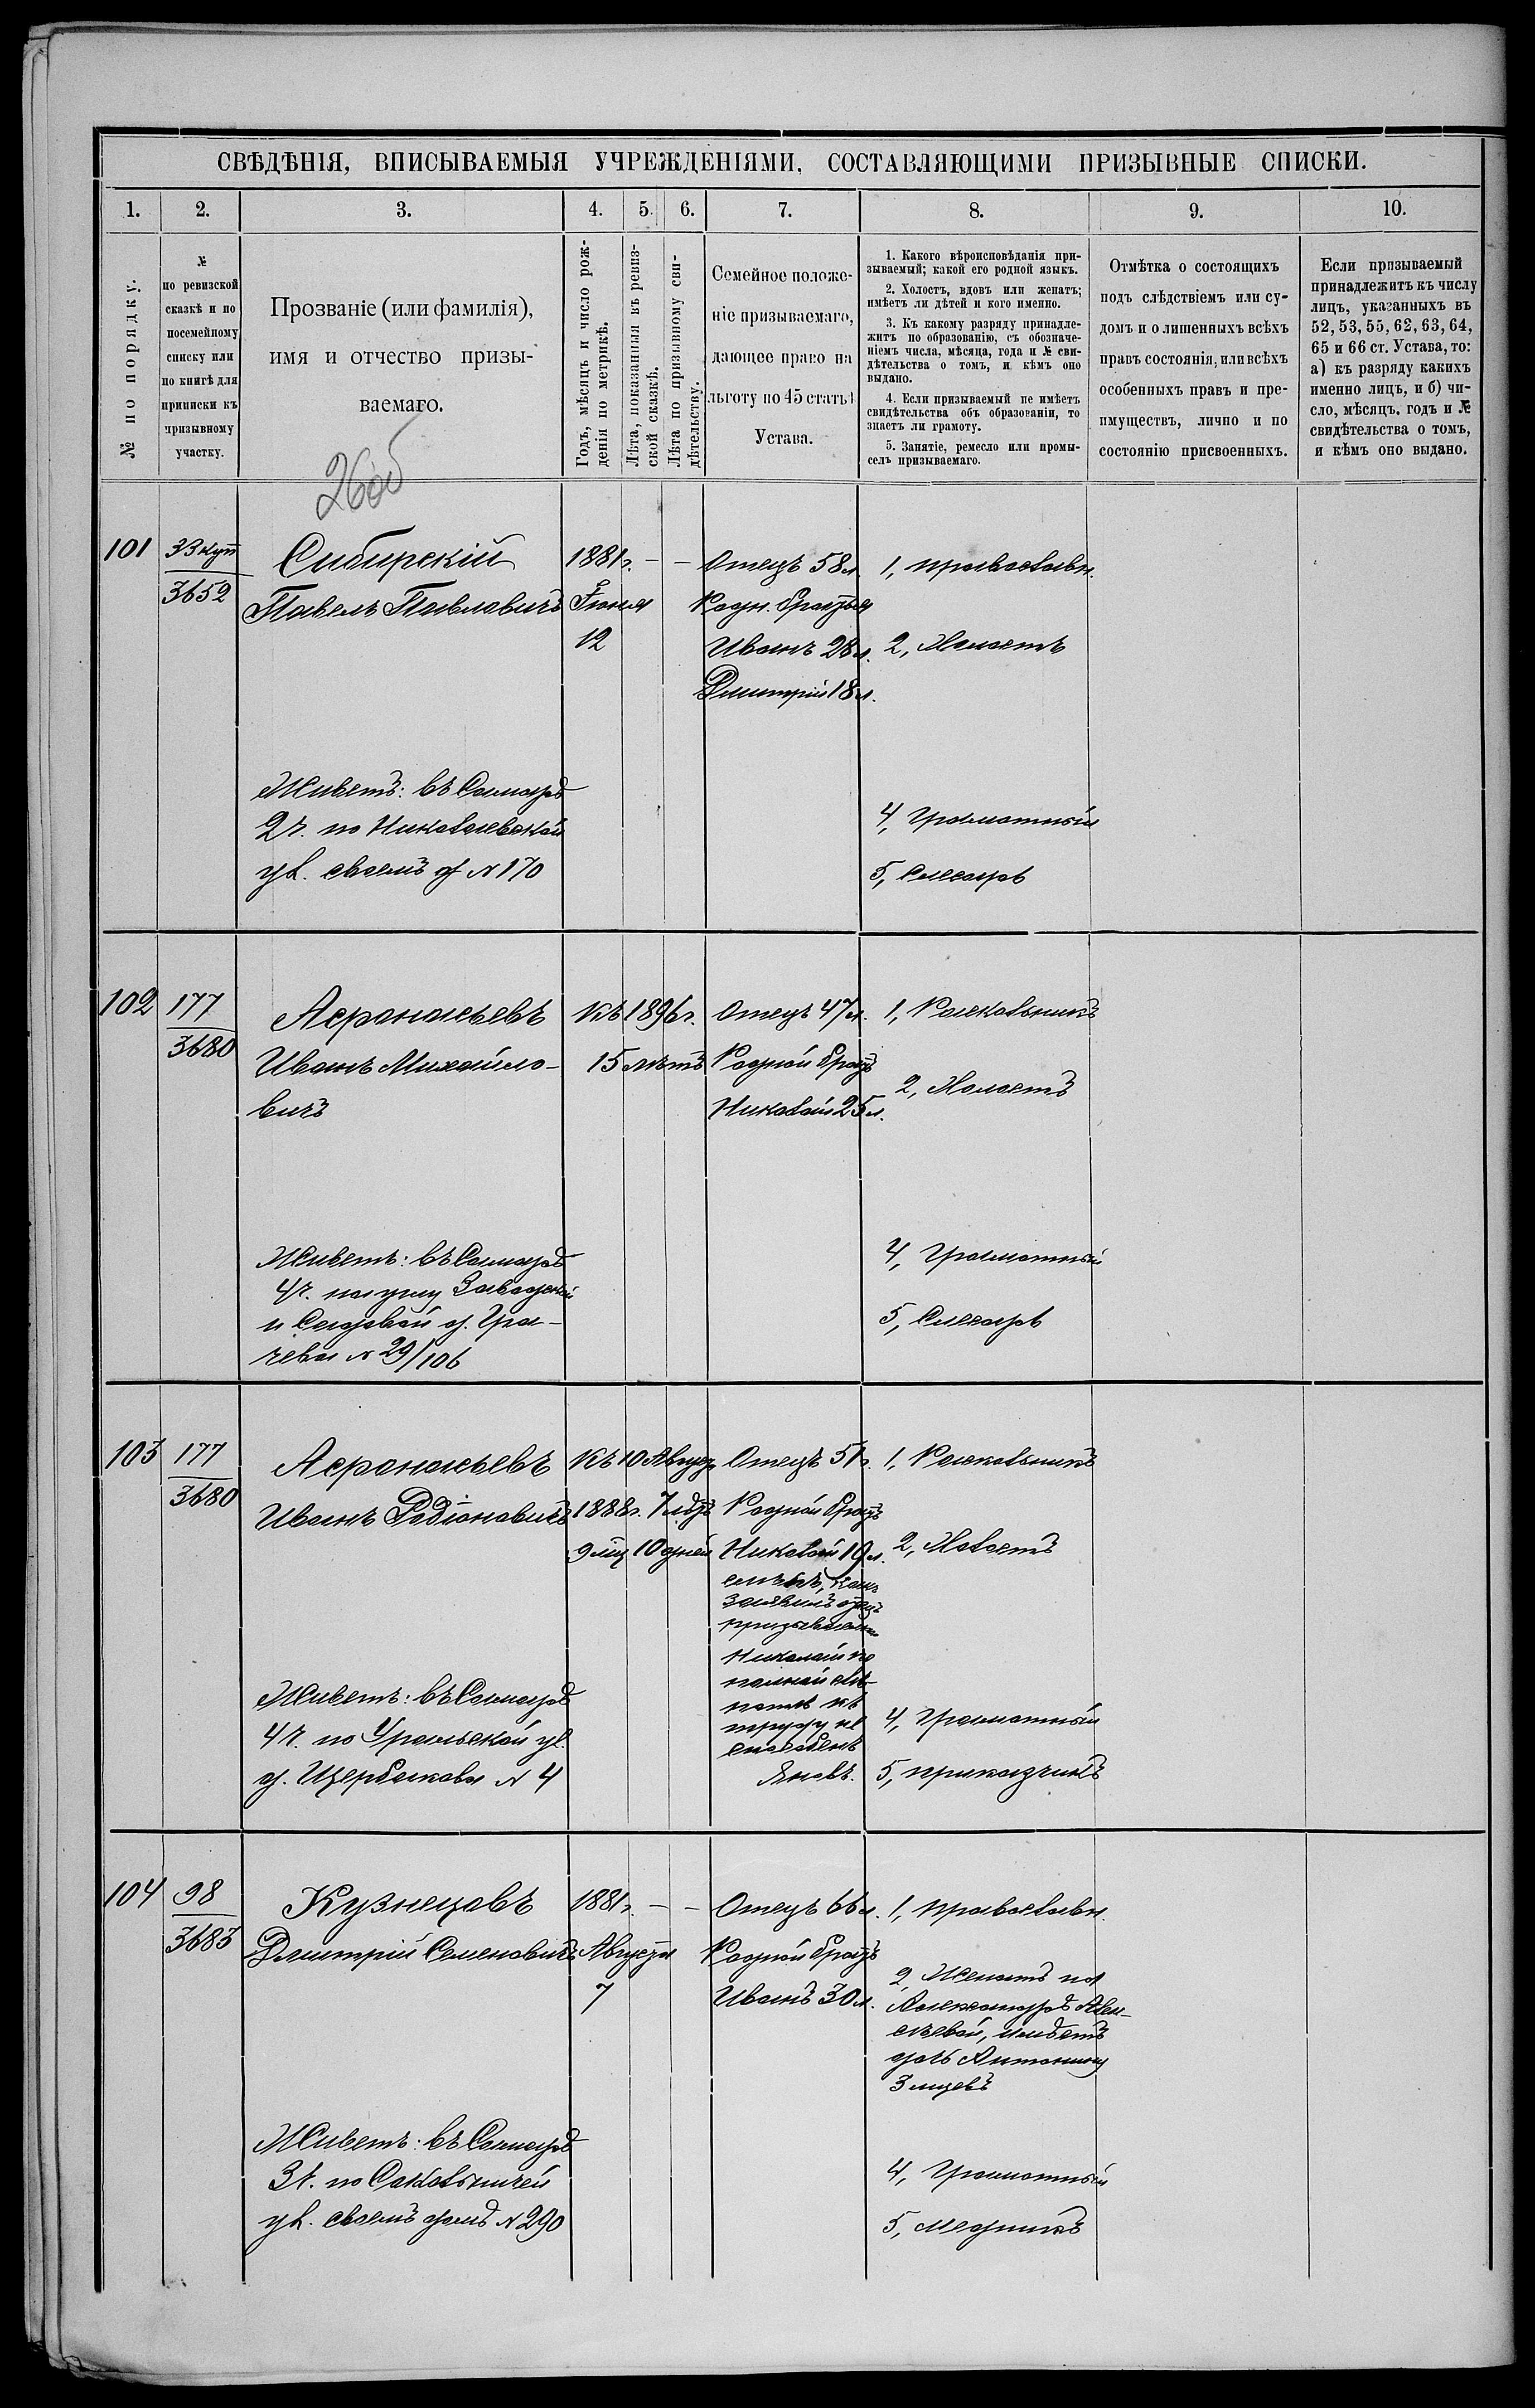 СВѢДѢНІЯ, ВПИСЫВАЕМЫЯ УЧРЕЖДЕНІЯМИ, СОСТАВЛЯЮЩИМИ ПРИЗЫВНЫЕ СПИСКИ.
1. 2. 3. 4. 5. 6. 7. 8. 9. 10.
№ по порядку.
№
по ревизской
сказкѣ и по
посемейному
списку или
по книгѣ для
приписки къ
призывному
участку.
Прозваніе (или фамилія),
имя и отчество призы-
ваемаго.
Годъ, мѣсяцъ и число рож-
денія по метрикѣ.
Лѣта, показанныя въ ревиз-
ской сказкѣ.
Лѣта по призывному сви-
дѣтельству.
Семейное положе-
ніе призываемаго,
дающее право на
льготу по 45 статьѣ
Устава.
1. Какого вѣроисповѣданія при-
зываемый; какой его родной языкъ.
2. Холостъ, вдовъ или женатъ;
имѣетъ ли дѣтей и кого именно.
3. Къ какому разряду принадле-
житъ по образованію, съ обозначе-
ніемъ числа, мѣсяца, года и № сви-
дѣтельства о томъ, и кѣмъ оно
выдано.
4. Если призываемый не имѣетъ
свидѣтельства объ образованіи, то
знаетъ ли грамоту.
5. Занятіе, ремесло или промы-
селъ призываемаго.
Отмѣтка о состоящихъ
подъ слѣдствіемъ или су-
домъ и о лишенныхъ всѣхъ
правъ состоянія, или всѣхъ
особенныхъ правъ и пре-
имуществъ, лично и по
состоянію присвоенныхъ.
Если призываемый
принадлежитъ къ числу
лицъ, указанныхъ въ
52, 53, 55, 62, 63, 64,
65 и 66 ст. Устава, то:
а) къ разряду какихъ
именно лицъ, и б) чи-
сло, мѣсяцъ, годъ и №
свидѣтельства о томъ,
и кѣмъ оно выдано.
101
33 куп
3652
Сибирскій
Павелъ Павловичъ
Живетъ: въ Самарѣ
2 ч. по Николаевской
ул. своемъ д № 170
1881 г. — —
Іюня
12
Отецъ 58 л.
Родн. братья
Иванъ 28 л.
Дмитрій 18 л.
1, православн.
2, Холостъ
4, Грамотный
5, Слесарь
102
177
3680
Афонасьевъ
Иванъ Михайло-
вичъ
Живетъ: въ Самарѣ
4 ч. на углу Заводской
и Садовой д. Гра-
чева № 29/106
Къ 1896 г.
15 лѣтъ
Отецъ 47 л.
Родной братъ
Николай 25 л.
1, Раскольникъ
2, Холостъ
4, Грамотный
5, Слесарь
103
177
3680
Афонасьевъ
Иванъ Родіоновичъ
Живетъ: въ Самарѣ
4 ч. по Уральской ул.
д. Щербакова № 4
Къ 10 Август
1888 г. 7 лѣтъ
9 мц 10 дней
Отецъ 51 г.
Родной братъ
Николай 19 л.
заявилъ отецъ
Николай по
полной слѣ-
потѣ къ
труду не
способенъ
1, Раскольникъ
2, Холостъ
4, Грамотный
5, приказчикъ
104
98
3683
Кузнецовъ
Дмитрій Семеновичъ
Живетъ: въ Самарѣ
3 ч. по Сокольничей
ул. своемъ домѣ № 290
1881 г. — —
Августа
7
Отецъ 66 л.
Родной братъ
Иванъ 30 л.
1, православн.
2, Женатъ на
Александрѣ Алек-
сѣевой, имѣетъ
дочь Антонину
3 мцевъ
4, Грамотный
5, Мѣдникъ